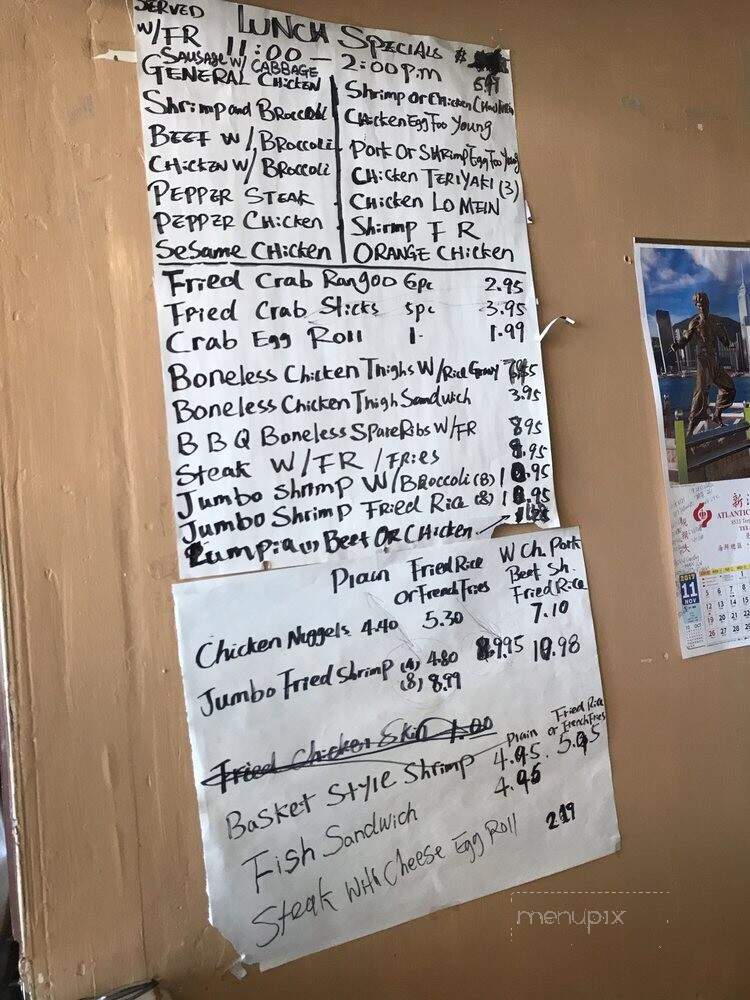 SERVED LUNCH SPECIALS $
W/FR 11:00 — 2:00 P.M
SAUSAGE W/ CABBAGE
GENERAL CHICKEN
Shrimp and Broccoli
BEEF W/ BROCCOLi
CHICKEN W/ BROCCOLi
PEPPER STEAK
PEPPER CHICKEN
SeSame CHICKEN
Shrimp or Chicken
CHicken Egg Foo Young
Pork Or SHRimp Egg Foo Young
CHicken TERiYAKi (3)
CHicken LO MEIN
SHrimp F R
ORANGE CHicken
Fried Crab Rangoo 6pc 2.95
Fried Crab Sticks 5pc 3.95
Crab Egg Roll 1- 1.99
Boneless Chicken Thighs W/Rice Gravy
Boneless Chicken Thigh Sandwich 3.95
B B Q Boneless SpareRibs W/FR 8.95
Steak W/FR /Fries 8.95
Jumbo Shrimp W/BRoccoli (8)
Jumbo Shrimp Fried Rice (8)
Lumpia Beef OR CHicken
Plain Fried Rice or French Fries W Ch. Pork Beef Sh. Fried Rice
Chicken Nuggels 4.40 5.30 7.10
Jumbo Fried Shrimp (4) 4.80
(8) 8.99 10.98
Fried Chicken Skin 1.00
Plain Fried Rice or French Fries
Basket Style Shrimp 4.95 5.95
Fish Sandwich 4.95
Steak With Cheese Egg Roll 2.19
ATLANTIC
2017
11
NOV
menupix